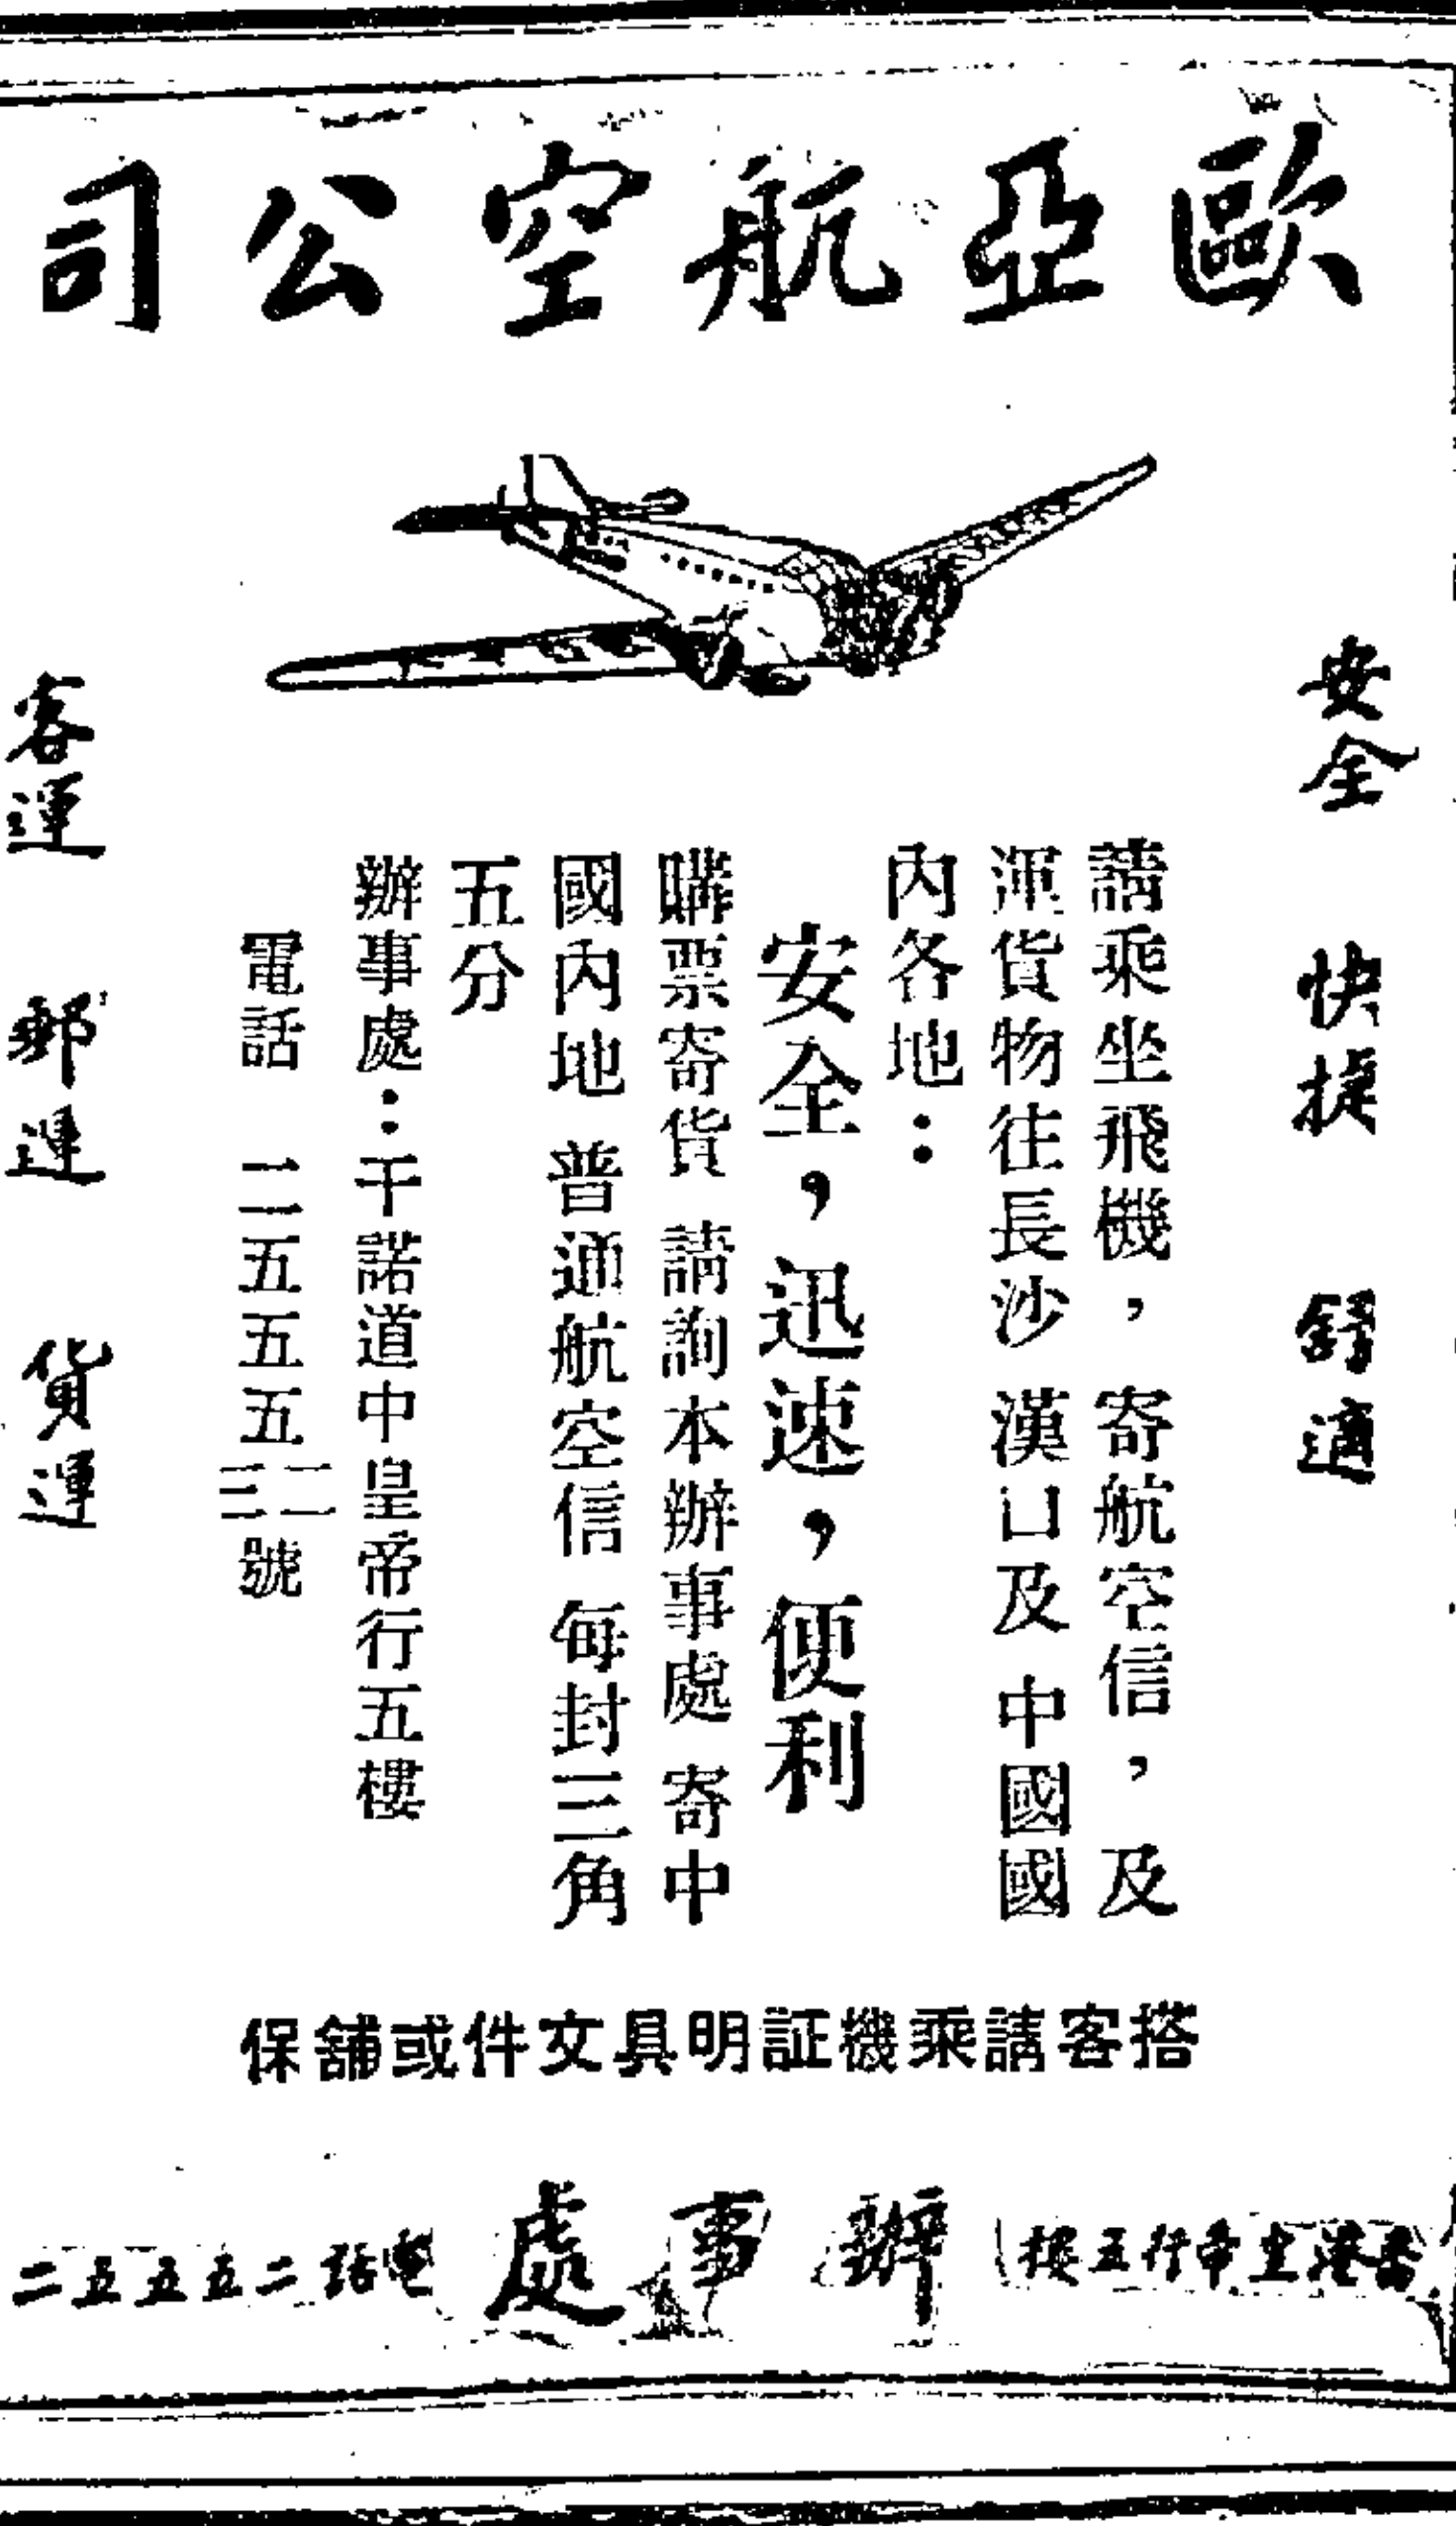 歐亞航空公司
安全 快捷 舒適
請乘坐飛機，寄航空信，及
運貨物往長沙 漢口及 中國國
內各地：
安全，迅速，便利
購票寄貨 請詢本辦事處 寄中
國內地 普通航空信 每封三角
五分
辦事處：干諾道中皇帝行五樓
電話 二五五五二三號
客運 郵運 貨運
搭客請乘機証明具文件或舖保
香港皇帝行五樓 辦事處 電話二五五五二